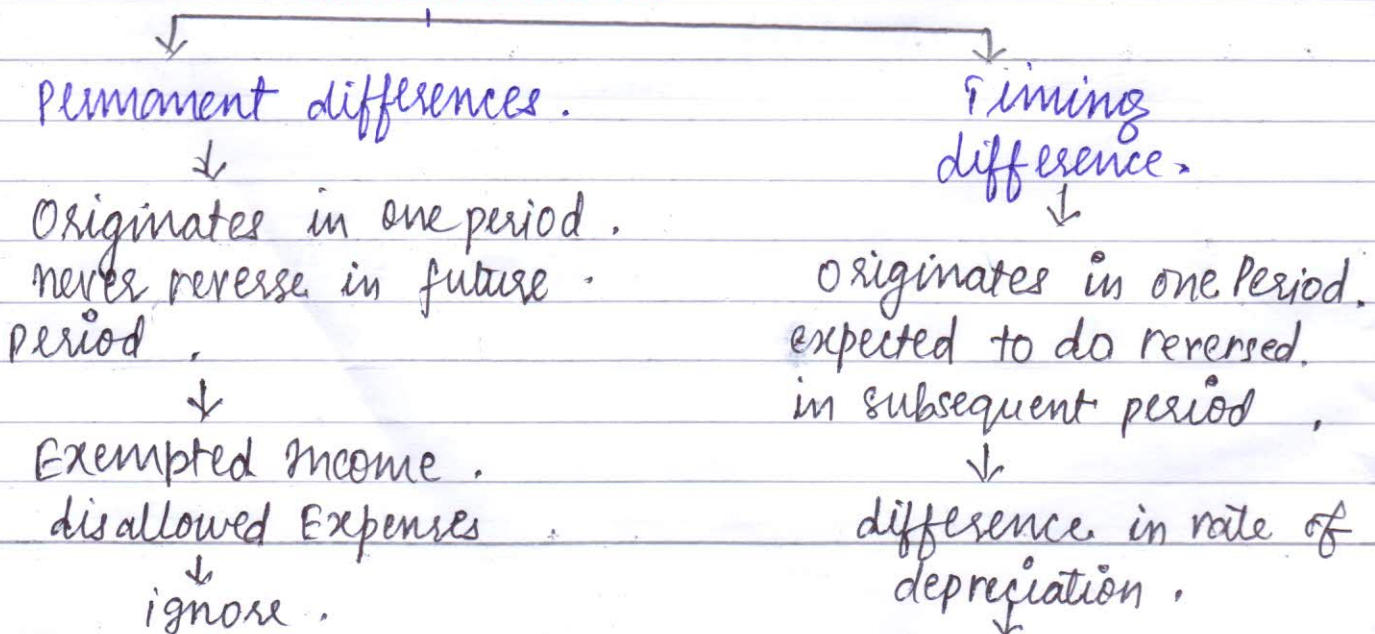 Permanent differences.
Originates in one period.
never reverse in future
period.
Exempted Income.
disallowed Expenses
ignore.
Timing
difference.
Originates in one Period.
expected to do reversed.
in subsequent period.
difference in rate of
depreciation.